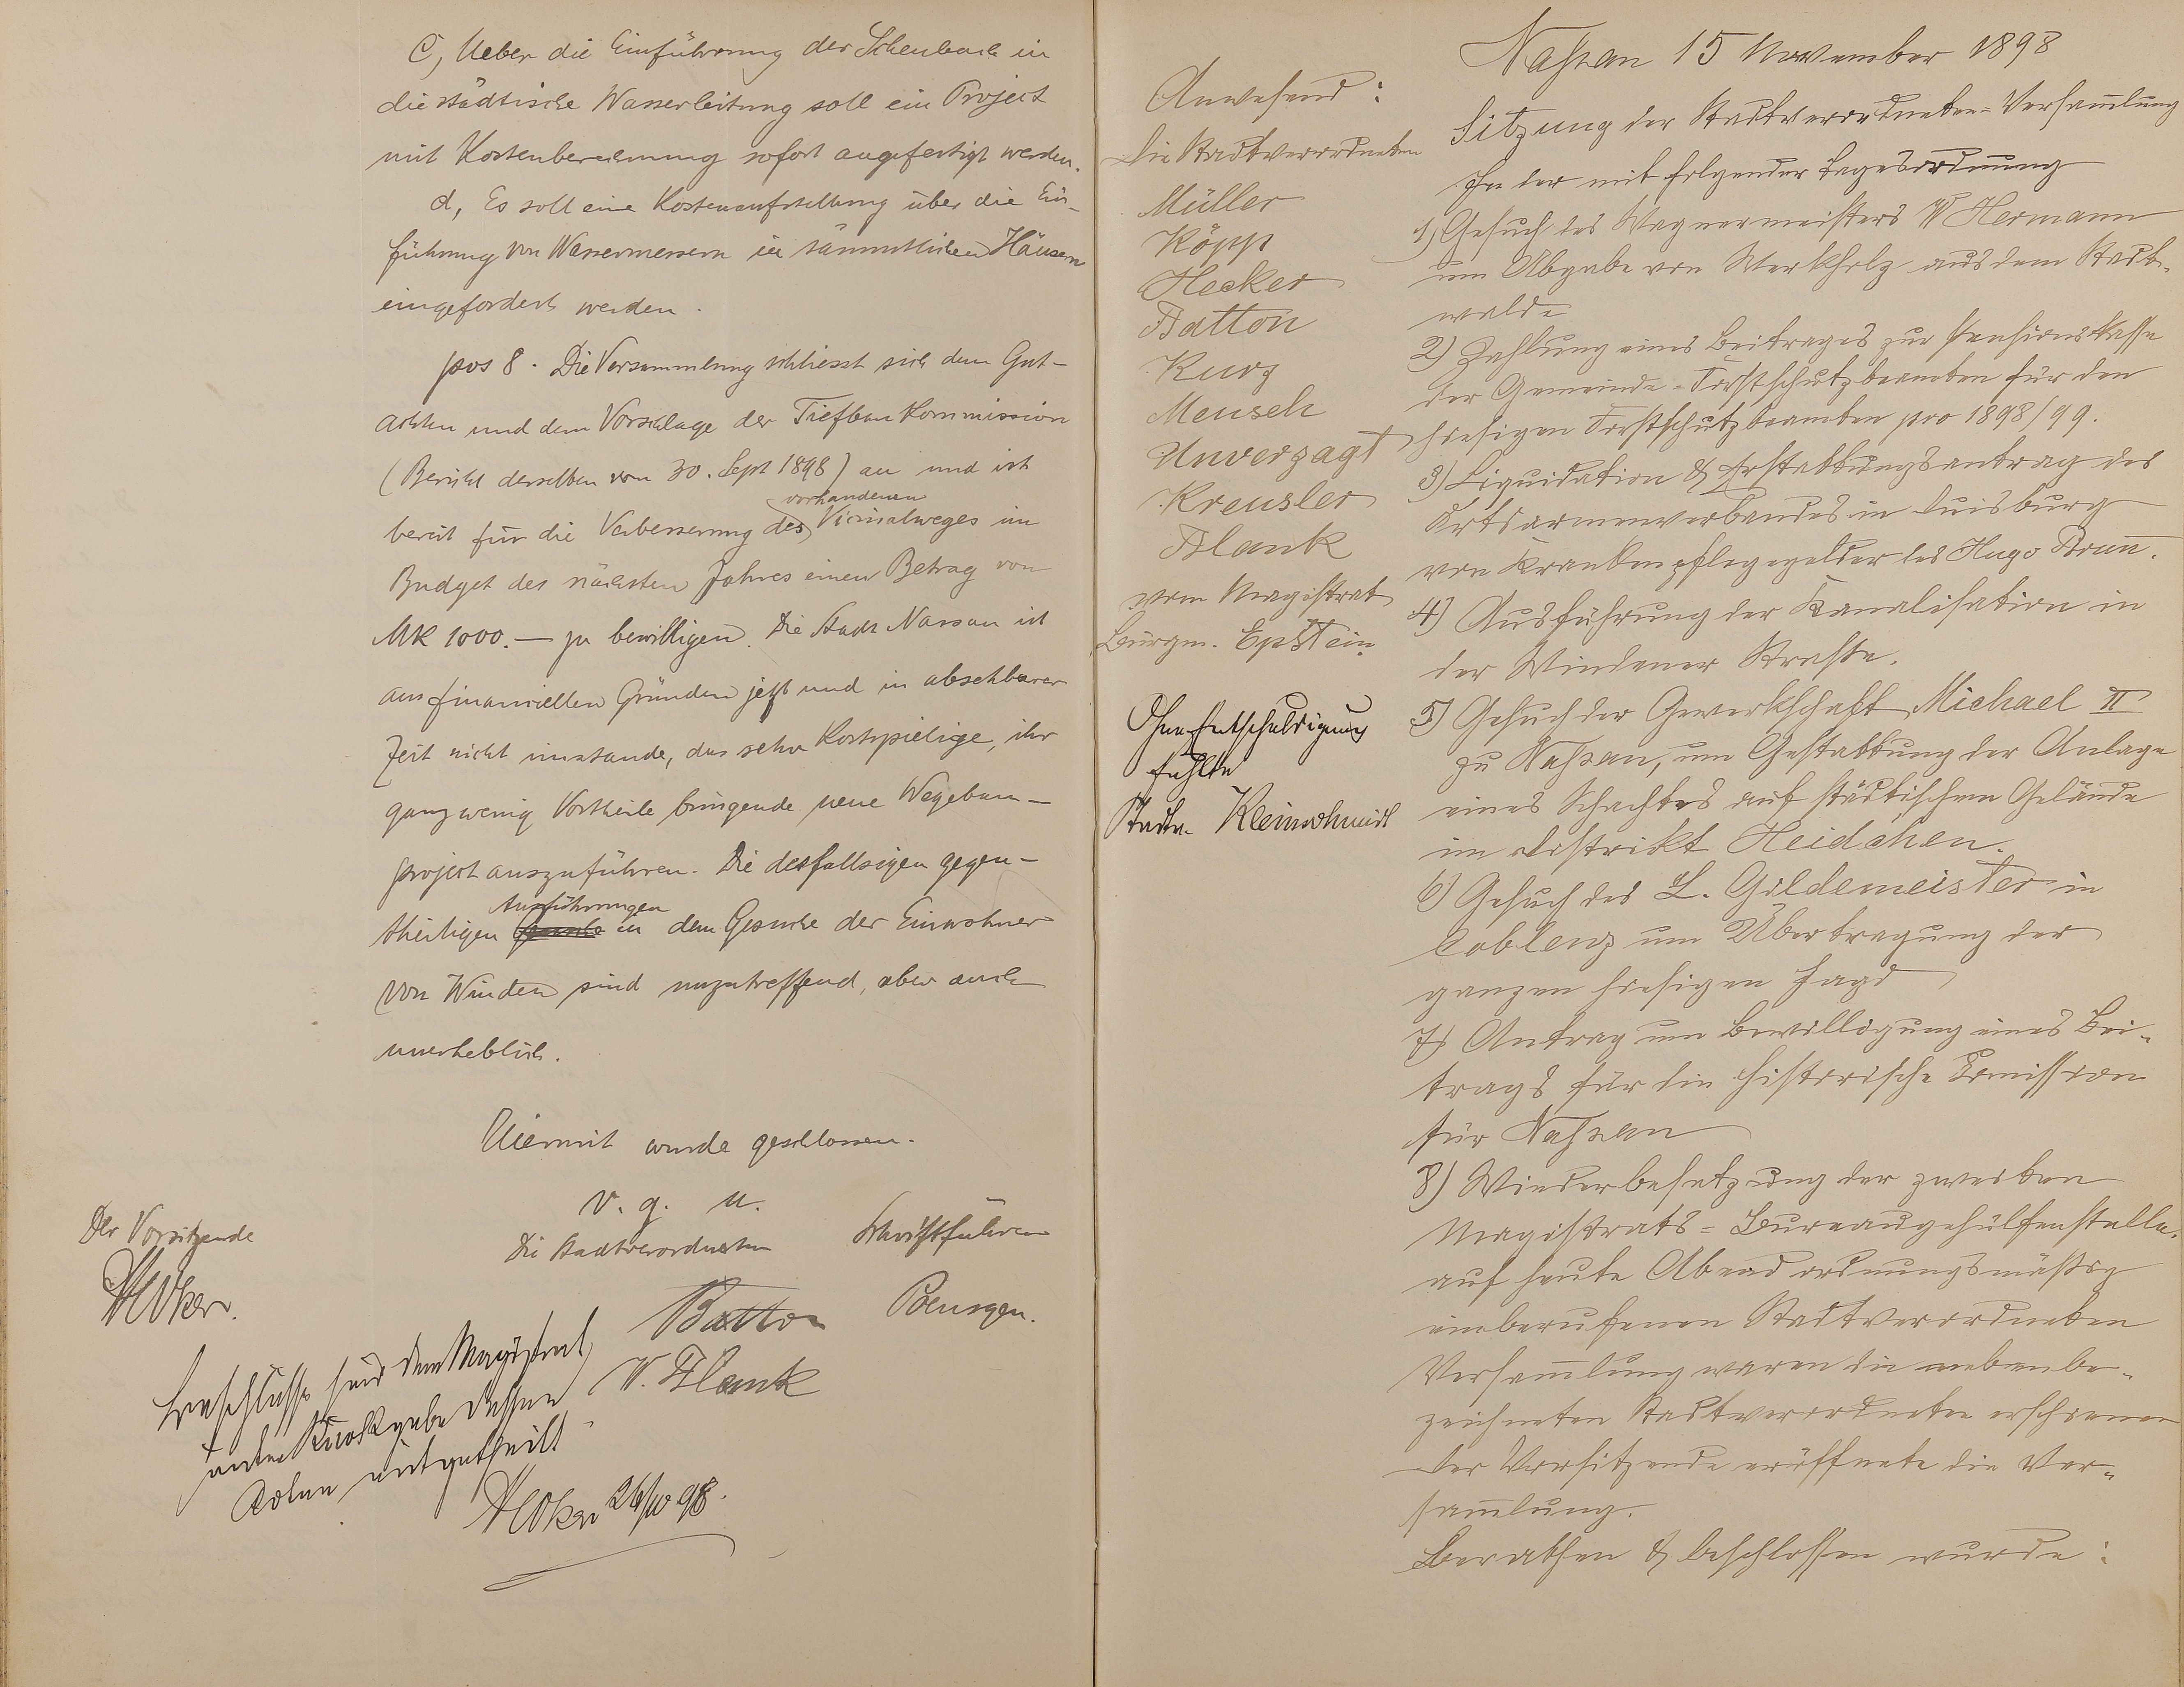 C, Ueber die Einführung der Scheubach in
die städtische Wasserleitung soll ein Project
mit Kostenberechnung sofort angefertigt werden.
d, Es soll eine Kostenaufstellung über die Ein-
führung von Wassermessern in sämmtlichen Häusern
eingefordert werden.
pos 8. Die Versammlung schliesst sich dem Gut-
achten und dem Vorschlage der Tiefbau Kommission
(Bericht derselben vom 30. Sept 1898) an und ist
vorhandenen
bereit für die Verbesserung des Vicinalweges im
Budget des nächsten Jahres einen Betrag von
MK 1000.— zu bewilligen. Die Stadt Nassau ist
aus finanziellen Gründen jetzt und in absehbarer
Zeit nicht imstande, das sehr Kostspielige, ihr
ganz wenig Vortheile bringende neue Wegebau-
project auszuführen. Die desfallsigen gegen-
Ausführungen
theiligen in dem Gesuche der Einwohner
von Winden sind unzutreffend, aber auch
unerheblich.
Hiermit wurde geschlossen.
v. g. u.
Der Vorsitzende
Die Stadtverordneten Schriftführer
Hecker.
Batton Poensgen.
W. Flank
Beschlüsse sind dem Magistrat
unter Rückgabe dessen
Acten mitgetheilt
Hecker 26/10 98.
Naßau 15 November 1898
Anwesend:
Die Stadtverordneten
Müller
Köpp
Hecker
Batton
Kurz
Meusch
Unverzagt
Kreusler
Flank
vom Magistrat
Bürgm. Epstein
Ohne Entschuldigung
fehlte
Stadtv. Kleinschmidt
Sitzung der Stadtverordneten-Versam̄lung
In der mit folgender Tagesordnung
1) Gesuch des Wagnermeisters W Hermann
um Abgabe von Werkholz aus dem Stadt-
walde
2) Zahlung eines Beitrages zur Pensionskasse
der Gemeinde-Forstschutzbeamten für den
hiesigen Forstschutzbeamten pro 1898/99.
3) Liquidation & Erstattungsantrag des
Ortsarmenverbandes in Duisburg
von Krankenpflegegelder des Hugo Brun̄.
4) Ausführung der Kanalisation in
der Windener Straße.
5) Gesuch der Gewerkschaft Michael II
zu Naßau, um Gestattung der Anlage
eines Schachtes auf städtischem Gelände
im Distrikt Heidchen.
6) Gesuch des L. Gildemeister in
Coblenz um Übertragung der
ganzen hiesigen Jagd
7) Antrag um Bewilligung eines Bei-
trags für die historische Com̄ission
für Naßau
8) Wiederbesetzung der zweiten
Magistrats-Bureaugehülfenstelle.
auf heute Abend ordnungsmäßig
einberufenen Stadtverordneten
Versam̄lung waren die nebenbe-
zeichneten Stadtverordneten erschienen
Der Vorsitzende eröffnete die Ver-
sam̄lung.
Berathen & beschlossen wurde: